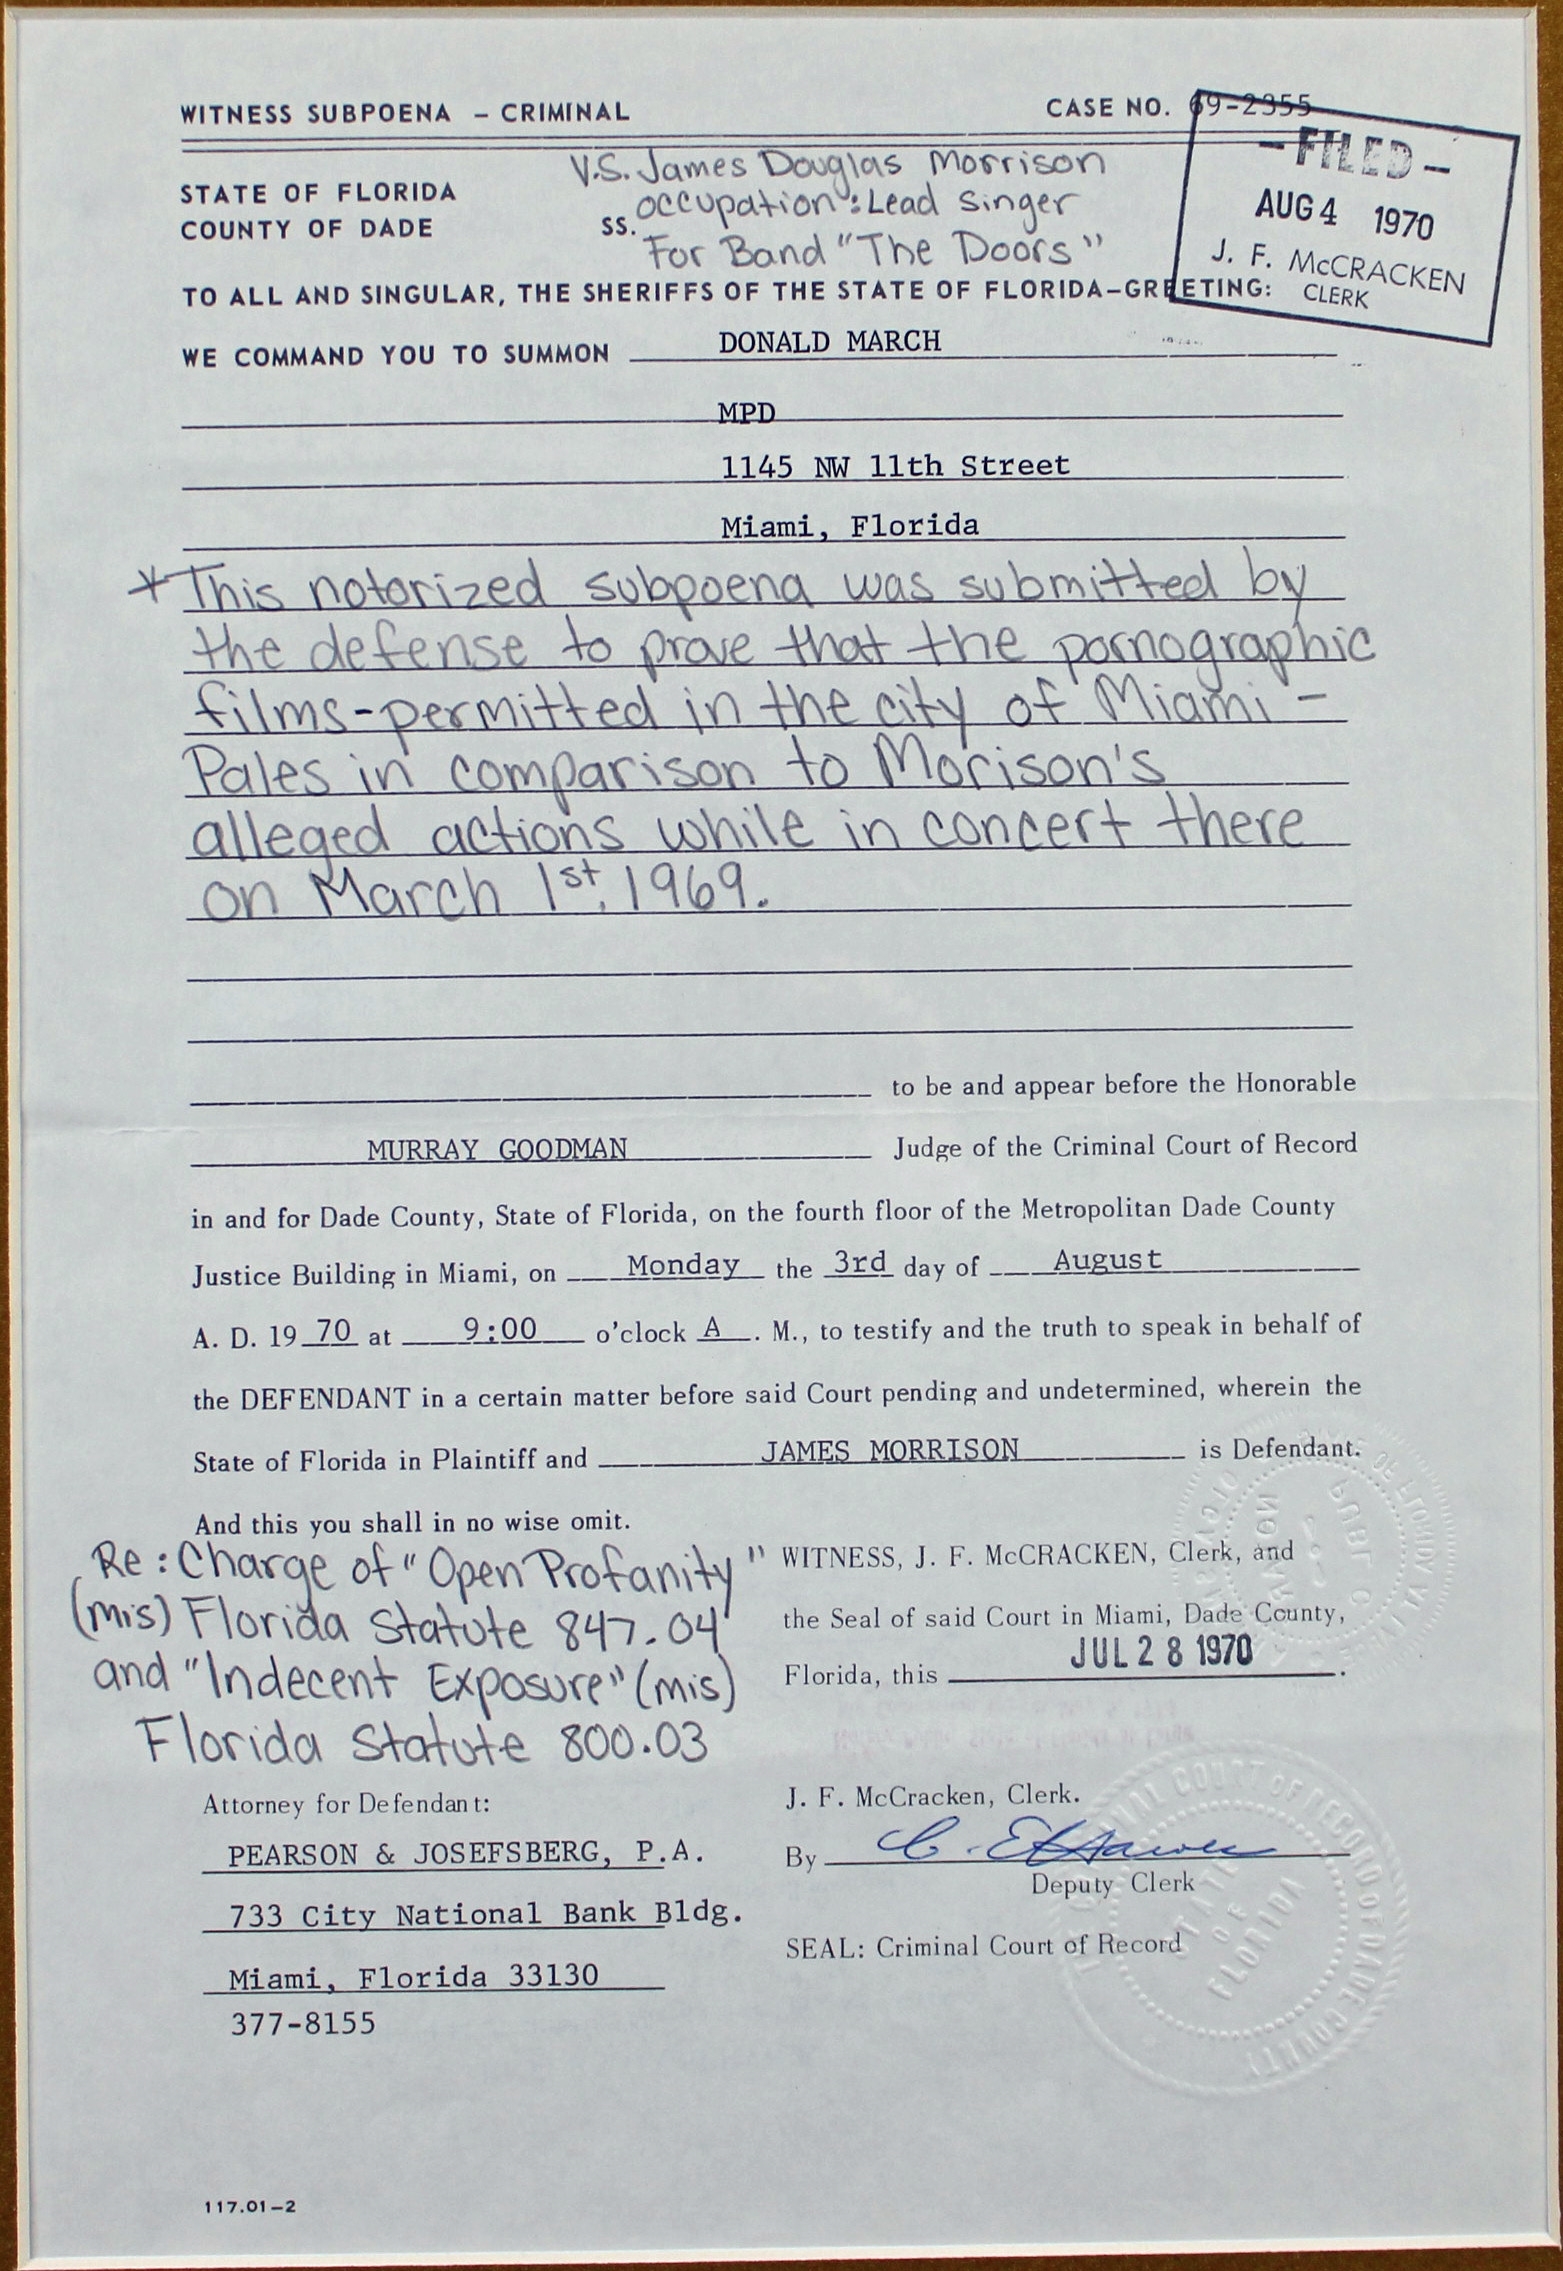 WITNESS SUBPOENA – CRIMINAL
CASE NO. 69-2355
–FILED–
AUG 4 1970
J. F. McCRACKEN
CLERK
V.S. James Douglas Morrison
STATE OF FLORIDA
occupation: Lead Singer
COUNTY OF DADE
SS.
For Band "The Doors"
TO ALL AND SINGULAR, THE SHERIFFS OF THE STATE OF FLORIDA–GREETING:
WE COMMAND YOU TO SUMMON DONALD MARCH
MPD
1145 NW 11th Street
Miami, Florida
*This notorized subpoena was submitted by
the defense to prove that the pornographic
films-permitted in the city of Miami -
Pales in comparison to Morison's
alleged actions while in concert there
on March 1st, 1969.
to be and appear before the Honorable
MURRAY GOODMAN Judge of the Criminal Court of Record
in and for Dade County, State of Florida, on the fourth floor of the Metropolitan Dade County
Justice Building in Miami, on Monday the 3rd day of August
A. D. 19 70 at 9:00 o'clock A . M., to testify and the truth to speak in behalf of
the DEFENDANT in a certain matter before said Court pending and undetermined, wherein the
State of Florida in Plaintiff and JAMES MORRISON is Defendant.
And this you shall in no wise omit.
Re: Charge of "Open Profanity"
(mis) Florida Statute 847.04
and "Indecent Exposure" (mis)
Florida Statute 800.03
WITNESS, J. F. McCRACKEN, Clerk, and
the Seal of said Court in Miami, Dade County,
Florida, this JUL 28 1970.
Attorney for Defendant:
PEARSON & JOSEFSBERG, P.A.
733 City National Bank Bldg.
Miami, Florida 33130
377-8155
J. F. McCracken, Clerk.
By
Deputy Clerk
SEAL: Criminal Court of Record
COURT OF RECORD OF DADE COUNTY
OF
FLORIDA
117.01–2